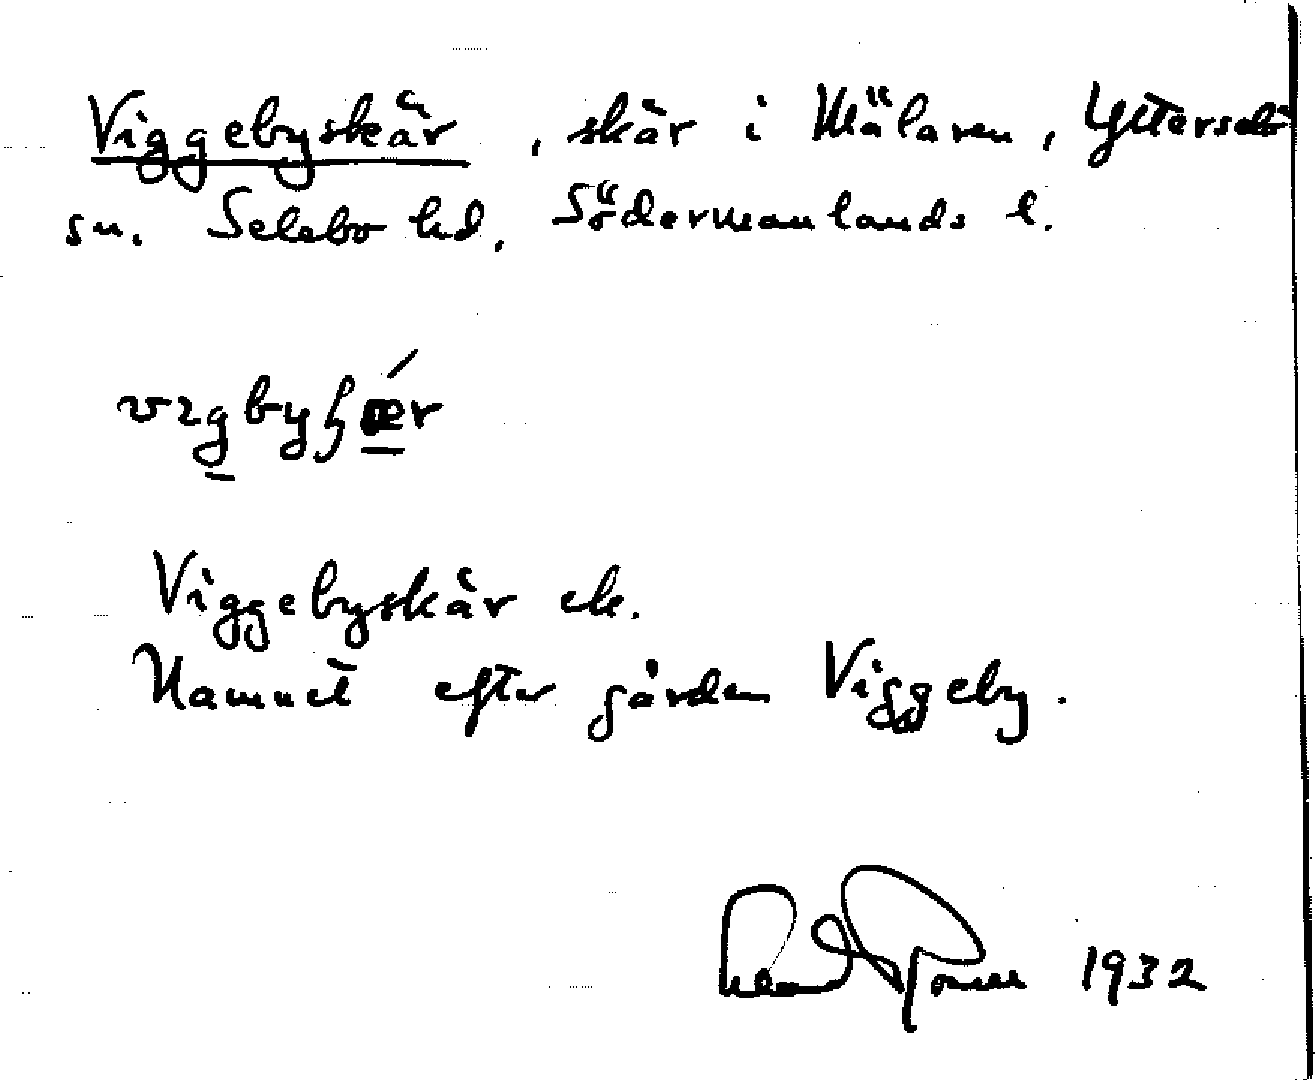 Viggebyskär, skär i Mälaren, Ytterselö
sn. Selebo hd, Södermanlands l.
Viggebyskär ek.
Namnet efter gården Viggeby.
1932